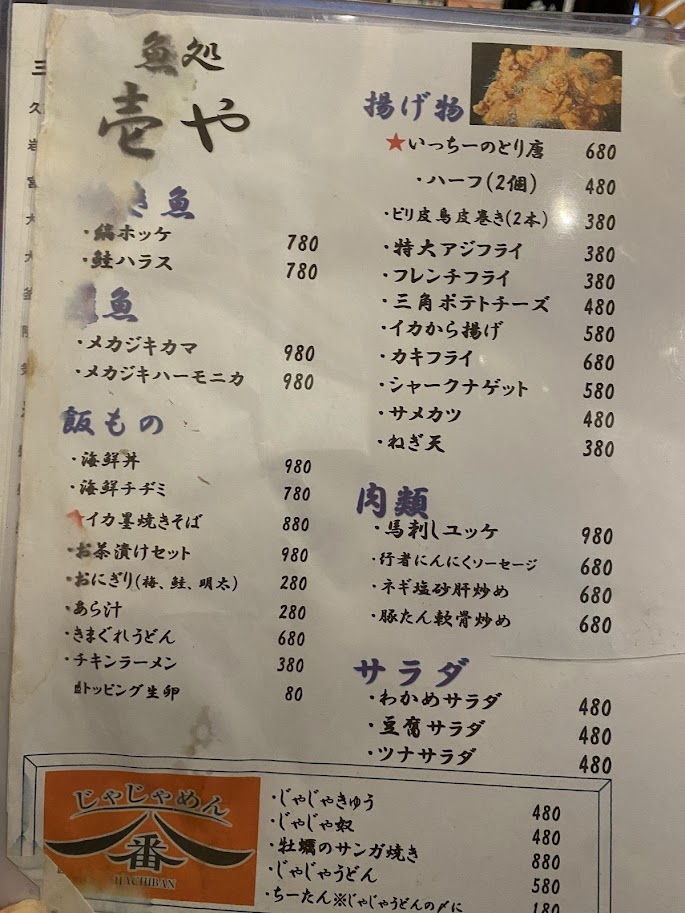 魚処
壱や
き魚
・縞ホッケ 780
・鮭ハラス 780
魚
・メカジキカマ 980
・メカジキハーモニカ 980
飯もの
・海鮮丼 980
・海鮮チヂミ 780
★イカ墨焼きそば 880
・お茶漬けセット 980
・おにぎり(梅、鮭、明太) 280
・あら汁 280
・きまぐれうどん 680
・チキンラーメン 380
トッピング生卵 80
揚げ物
★いっちーのとり唐 680
・ハーフ(2個) 480
・ピリ皮鳥皮巻き(2本) 380
・特大アジフライ 380
・フレンチフライ 380
・三角ポテトチーズ 480
・イカから揚げ 580
・カキフライ 680
・シャークナゲット 580
・サメカツ 480
・ねぎ天 380
肉類
・馬刺しユッケ 980
・行者にんにくソーセージ 680
・ネギ塩砂肝炒め 680
・豚たん軟骨炒め 680
サラダ
・わかめサラダ 480
・豆腐サラダ 480
・ツナサラダ 480
じゃじゃめん
八番
HACHIBAN
・じゃじゃきゅう 480
・じゃじゃ奴 480
・牡蠣のサンガ焼き 880
・じゃじゃうどん 580
・ちーたん※じゃじゃうどんの〆に 180